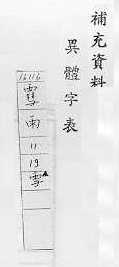 補充資料
異體字表
16116
雪
雨
11
19
雪